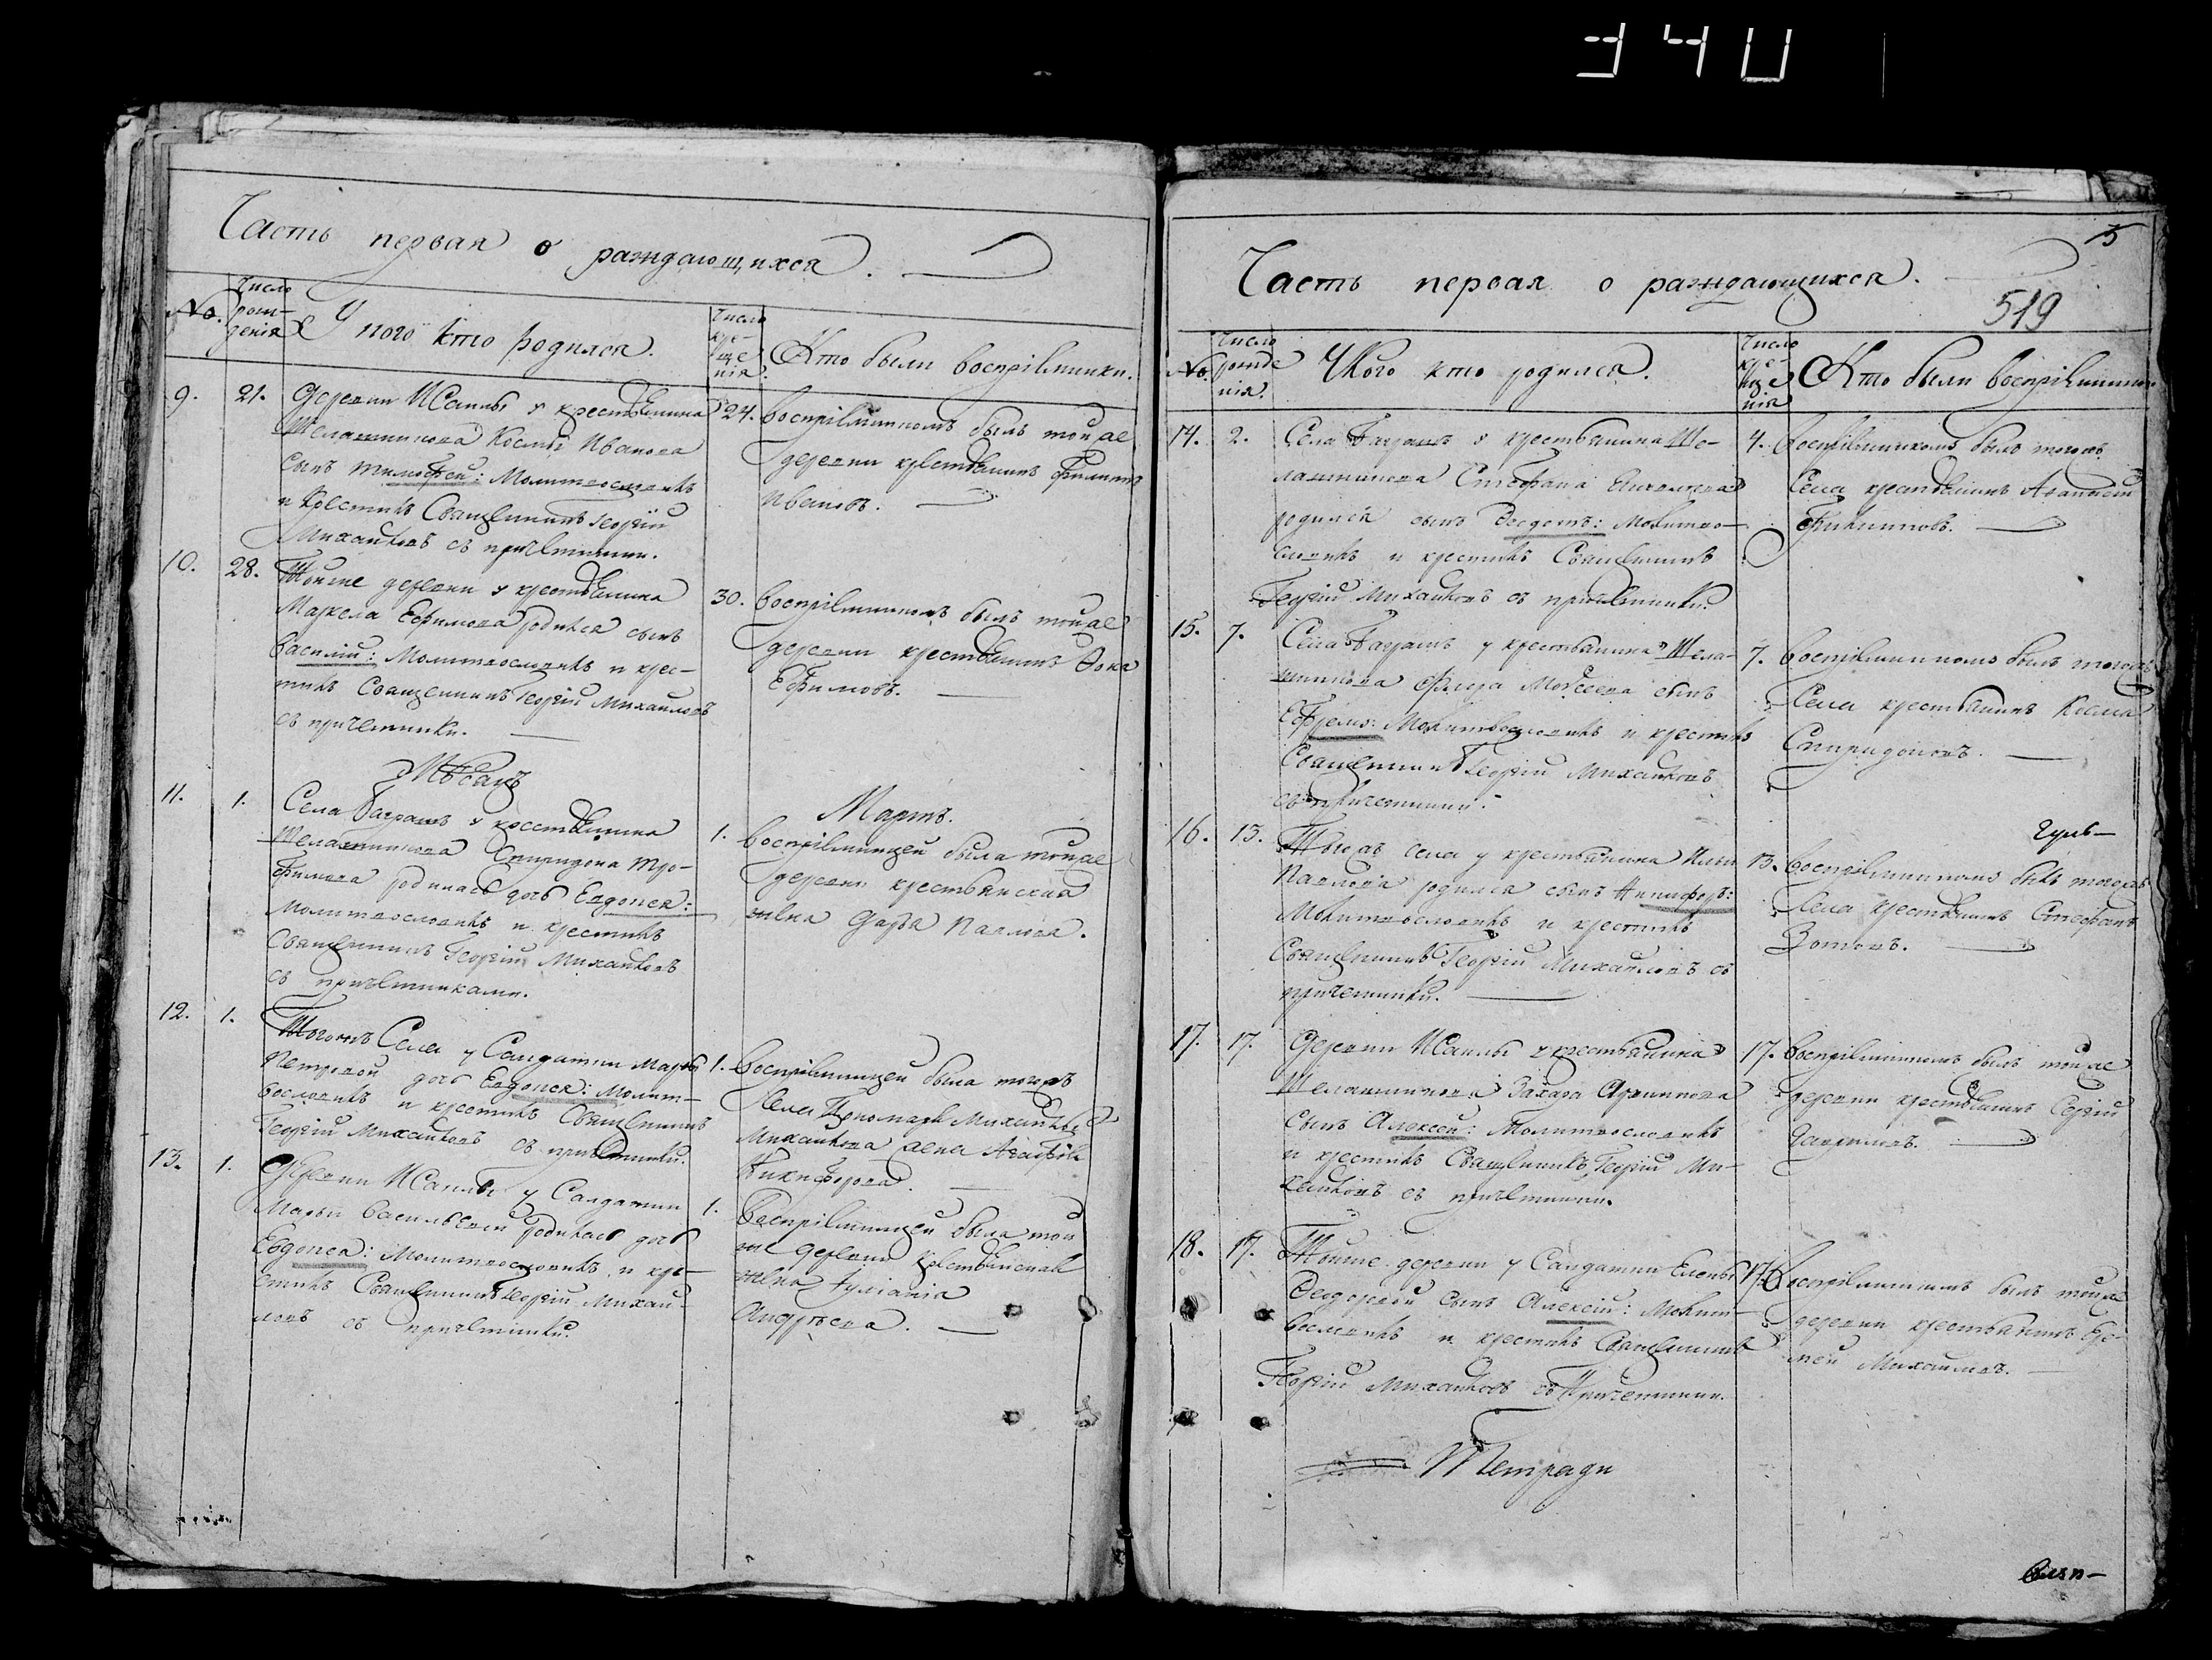 340
Часть первая о раждающихся.
№.
Число рож-
денія
У кого кто родился.
Число
кре-
ще
нія.
Кто были воспріемники.
9.
21.
Деревни Исаклы у крестьянина
Шелашникова Космы Иванова
сынъ Тимофей: Молитвословилъ
и крестилъ Священникъ Георгій
Михайловъ съ причетники.
24.
Воспріемникомъ былъ тойже
деревни крестьянинъ Филиппъ
Ивановъ.
10.
28.
Тойже деревни у крестьянина
Маркела Ефимова родился сынъ
Василій: Молитвословилъ и крес-
тилъ Священникъ Георгій Михайловъ
съ причетники.
30.
Воспріемникомъ былъ тойже
деревни крестьянинъ Фока
Ефимовъ.
Мѣсяцъ
Мартъ.
11.
1.
Села у крестьянина
Шелашникова Спиридона Тро-
фимова родилась дочь Евдокея:
Молитвословилъ и крестилъ
Священникъ Георгій Михайловъ
съ причетниками.
1.
Воспріемницей была тойже
деревни крестьянская
жена Дарья Павлова.
12.
1.
Тогожъ Села у Салдатки Марьи
Петровой дочь Евдокея: Молит-
вословилъ и крестилъ Священникъ
Георгій Михайловъ съ причетники.
1.
Воспріемницей была тогожъ
Села Пономаря Михайлы
Михайлова жена Агафья
Никифорова.
13.
1.
Деревни Исаклы у Салдатки
Марьи Васильевой родилась дочь
Евдокея: Молитвословилъ и кре-
стилъ Священникъ Георгій Михай-
ловъ съ причетники.
1.
Воспріемницей была той
же деревни крестьянская
жена Іуліанія
Андреева.
5
Часть первая о раждающихся.
519
№.
Число
рожде
нія.
У кого кто родился.
Число
кре-
ще
нія
Кто были воспріемники.
14.
2.
Села у крестьянина Ше-
лашникова Стефана
родился сынъ Феодотъ: Молитво-
словилъ и крестилъ Священникъ
Георгій Михайловъ съ причетники.
4.
Воспріемникомъ былъ тогожъ
Села крестьянинъ
Филиповъ.
15.
7.
Села у крестьянина Шела-
шникова Флора Мойсеева сынъ
Ефремъ: Молитвословилъ и крестилъ
Священникъ Георгій Михайловъ
съ причетники.
7.
Воспріемникомъ былъ тогожъ
Села крестьянинъ Косма
Спиридоновъ.
16.
13.
Тогожъ села у крестьянина Ильи
Павлова родился сынъ Никифоръ:
Молитвословилъ и крестилъ
Священникъ Георгій Михайловъ съ
причетники.
13.
Воспріемникомъ былъ тогожъ
Села крестьянинъ Стефанъ
Зотовъ.
17.
17.
Деревни Исаклы у крестьянина
Шелашникова Захара Архипова
Сынъ Алексей: Молитвословилъ
и крестилъ Священникъ Георгій Ми-
хайловъ съ причетники.
17.
Воспріемникомъ былъ тойже
деревни крестьянинъ Сергій
Гавриловъ.
18.
17.
Тойже деревни у Салдатки Елены
Феодоровой сынъ Алексій: Молит-
вословилъ и крестилъ Священникъ
Георгій Михайловъ съ Причетники.
17.
Воспріемникомъ былъ тойже
деревни крестьянинъ Ере-
мей Михайловъ.
Тетради